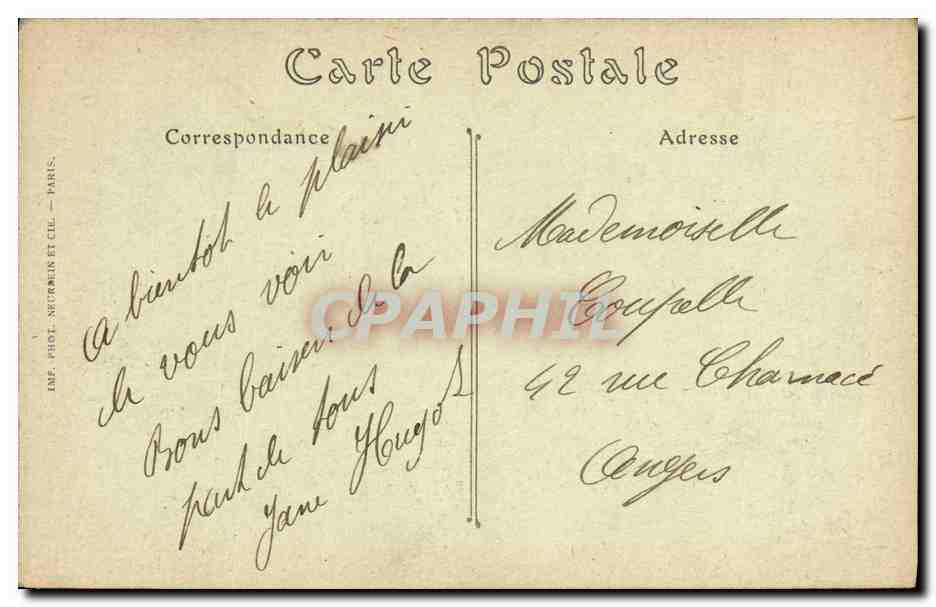 Carte Postale
Correspondance
A bientôt le plaisir
de vous voir
Bons baisers de la
part de tous
Jane Hugot
Adresse
Mademoiselle
Coupelle
42 rue Charnacé
Angers
IMP. PHOT. NEURDEIN ET CIE. — PARIS.
CPAPHIL